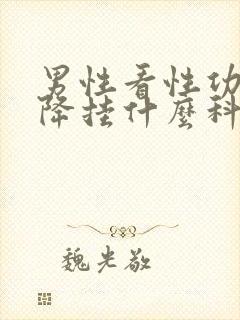 男性看性功
降挂什麼科
魏光敬